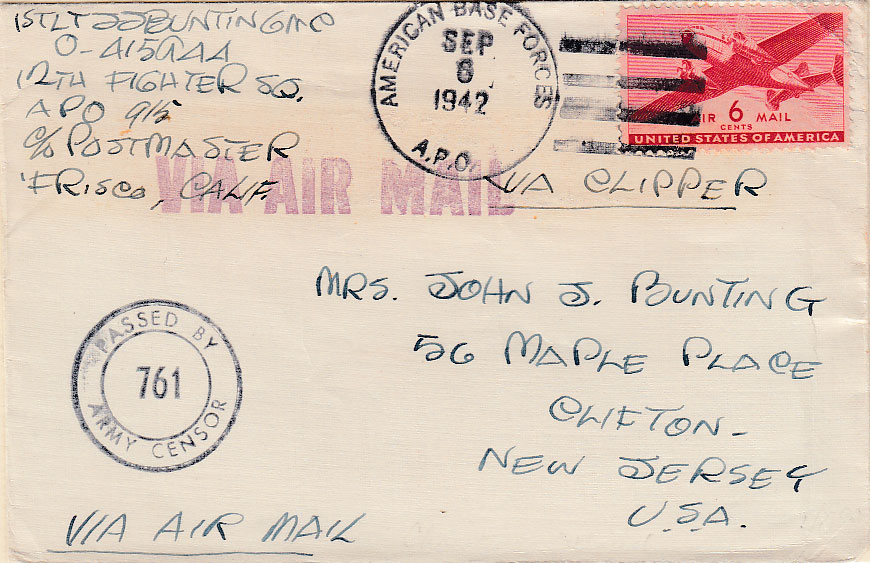 1ST LT JJ BUNTING MC
O-415944
12TH FIGHTER SQ.
APO 915
C/O POSTMASTER
'FRISCO, CALIF.
AMERICAN BASE FORCES
SEP
6
1942
A.P.O.
AIR 6 MAIL
CENTS
UNITED STATES OF AMERICA
VIA AIR MAIL
VIA CLIPPER
MRS. JOHN J. BUNTING
56 MAPLE PLACE
CLIFTON-
NEW JERSEY
U.S.A.
PASSED BY
761
ARMY CENSOR
VIA AIR MAIL